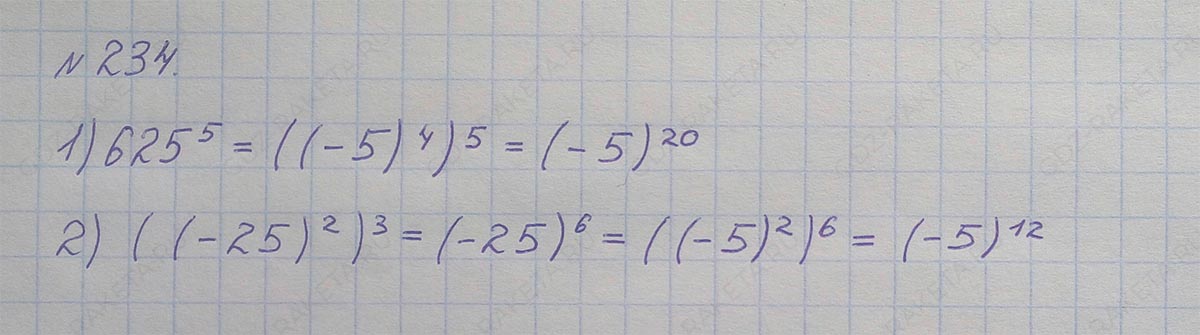 № 234.
1) 625⁵ = ((-5)⁴)⁵ = (-5)²⁰
2) ((-25)²)³ = (-25)⁶ = ((-5)²)⁶ = (-5)¹²